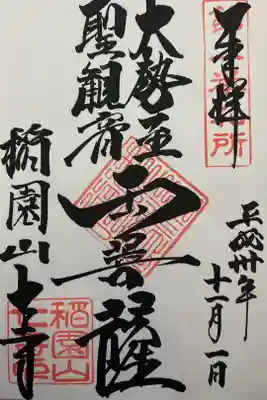 奉拝
平成卅年
十一月一日
大勢至
聖観音
両菩薩
稲園山七寺
稲園山